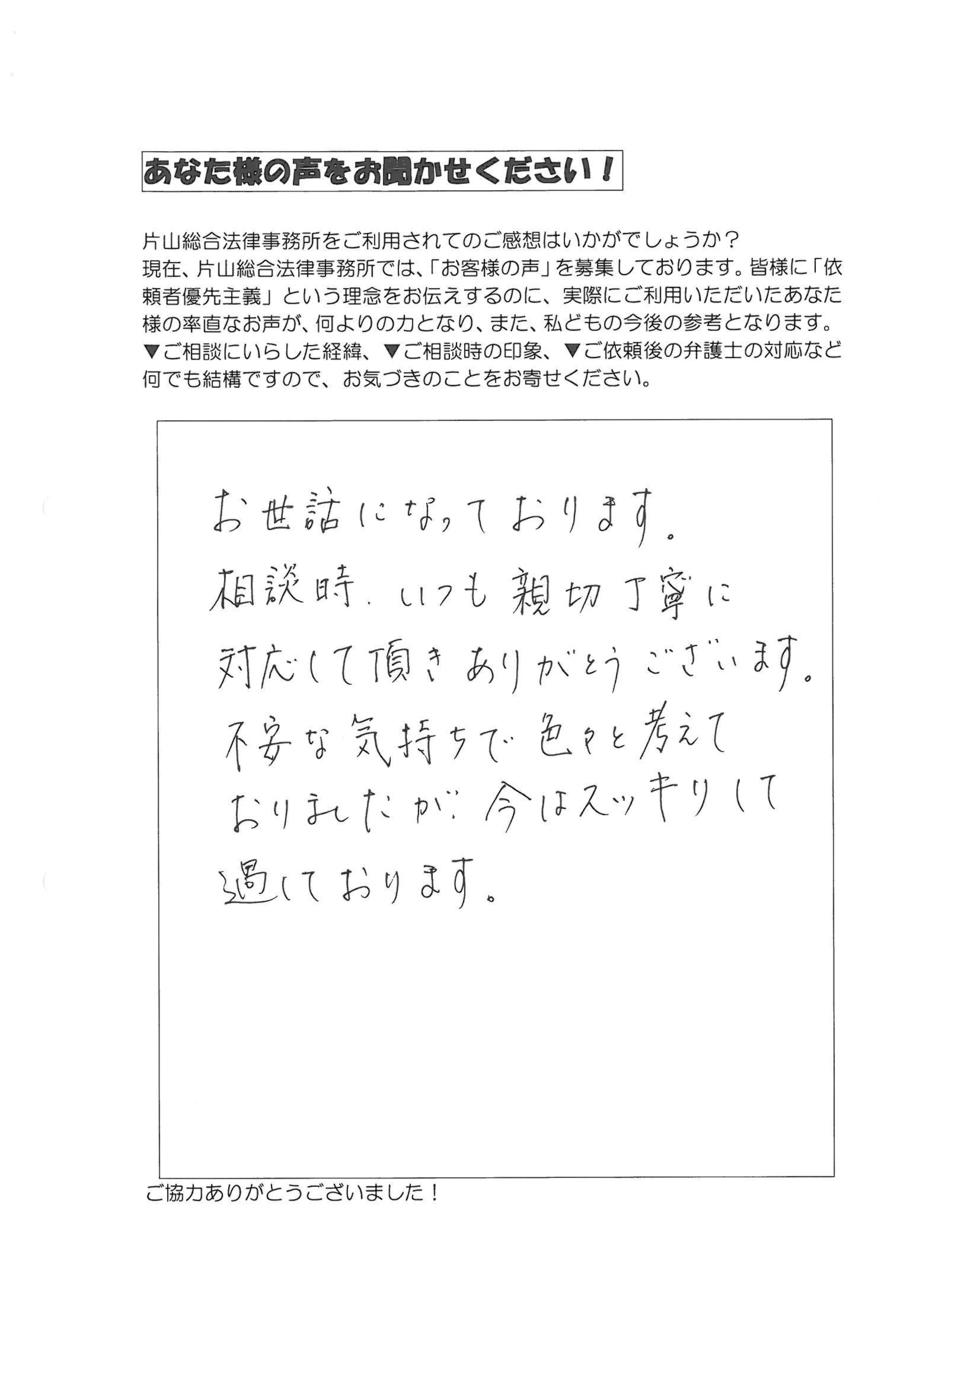 あなた様の声をお聞かせください！
片山総合法律事務所をご利用されてのご感想はいかがでしょうか？
現在、片山総合法律事務所では、「お客様の声」を募集しております。皆様に「依
頼者優先主義」という理念をお伝えするのに、実際にご利用いただいたあなた
様の率直なお声が、何よりの力となり、また、私どもの今後の参考となります。
▼ご相談にいらした経緯、▼ご相談時の印象、▼ご依頼後の弁護士の対応など
何でも結構ですので、お気づきのことをお寄せください。
お世話になっております。
相談時、いつも親切丁寧に
対応して頂きありがとうございます。
不安な気持ちで色々と考えて
おりましたが、今はスッキリして
過しております。
ご協力ありがとうございました！